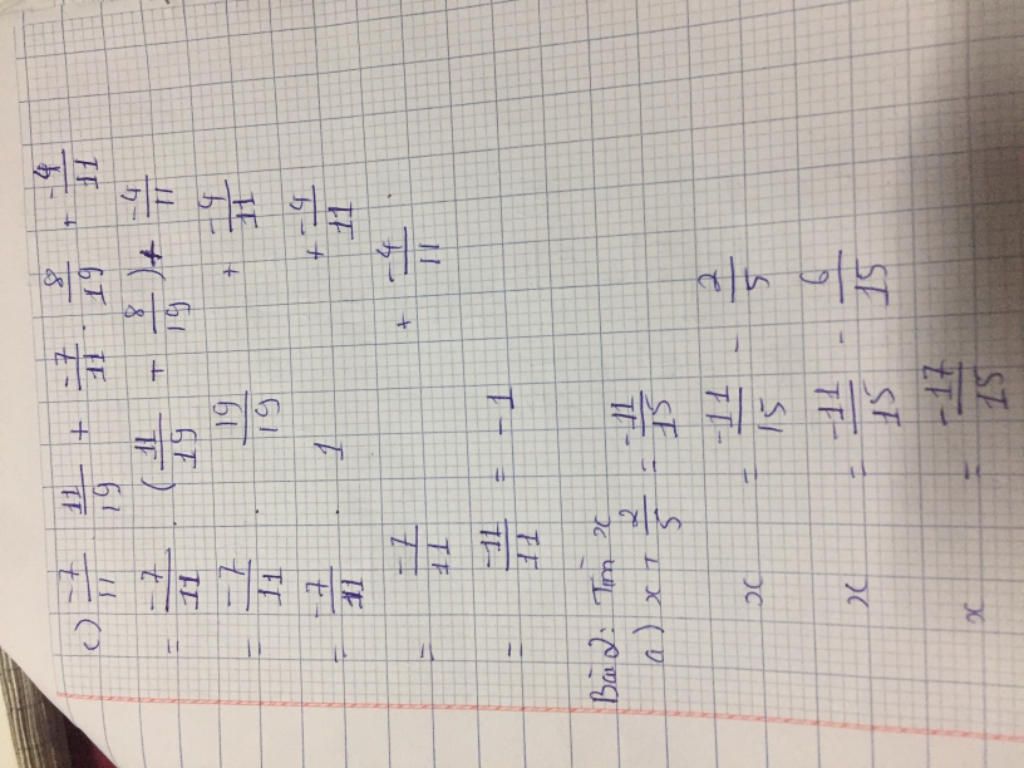 c) -7/11 . 11/19 + -7/11 . 8/19 + -4/11
= -7/11 . (11/19 + 8/19) + -4/11
= -7/11 . 19/19 + -4/11
= -7/11 . 1 + -4/11
= -7/11 + -4/11
= -11/11 = -1
Bài 2: Tìm x
a) x + 2/5 = -11/15
x = -11/15 - 2/5
x = -11/15 - 6/15
x = -17/15